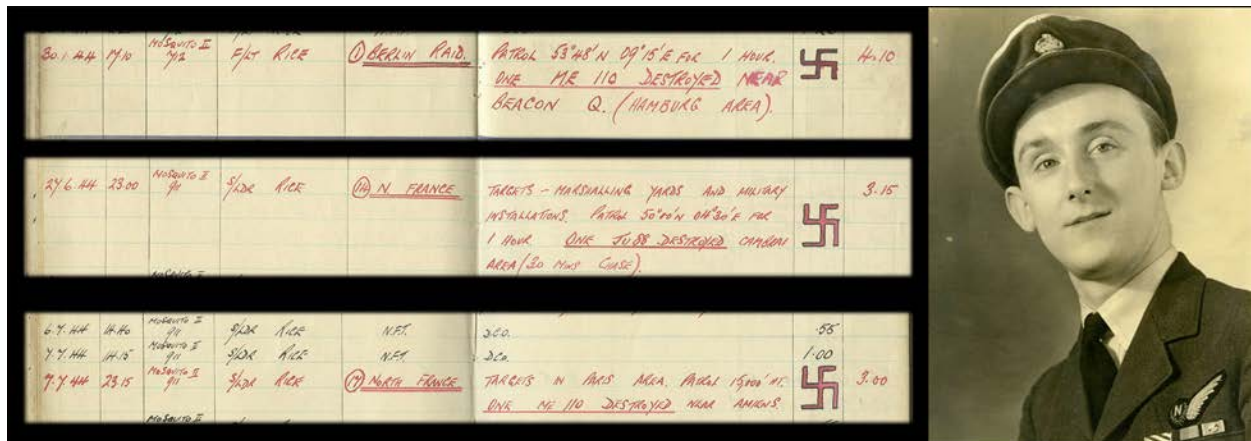 30.1.44 17.10 MOSQUITO II 712 F/LT RICE ① BERLIN RAID. PATROL 53°48'N 09°15'E FOR 1 HOUR. 4.10
ONE ME 110 DESTROYED NEAR
BEACON Q. (HAMBURG AREA).
27.6.44 23.00 MOSQUITO II 911 S/LDR RICE ⑭ N. FRANCE TARGETS - MARSHALLING YARDS AND MILITARY 3.15
INSTALLATIONS. PATROL 50°00'N 04°30'E FOR
1 HOUR ONE JU 88 DESTROYED CAMBRAI
AREA (30 MINS CHASE).
MOSQUITO II
6.7.44 14.40 MOSQUITO II 911 S/LDR RICE N.F.T. D.C.O. .55
7.7.44 14.15 MOSQUITO II 911 S/LDR RICE N.F.T. D.C.O. 1.00
7.7.44 23.15 MOSQUITO II 911 S/LDR RICE ⑰ NORTH FRANCE TARGETS IN PARIS AREA. PATROL 15,000' AT. 3.00
ONE ME 110 DESTROYED NEAR AMIENS.
MOSQUITO II
N